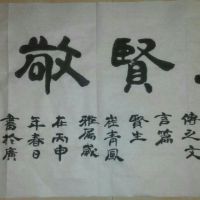 賢敬
之文
言篇
賢生
崔青鳳
雅属歲
在丙申
年春日
書於廣